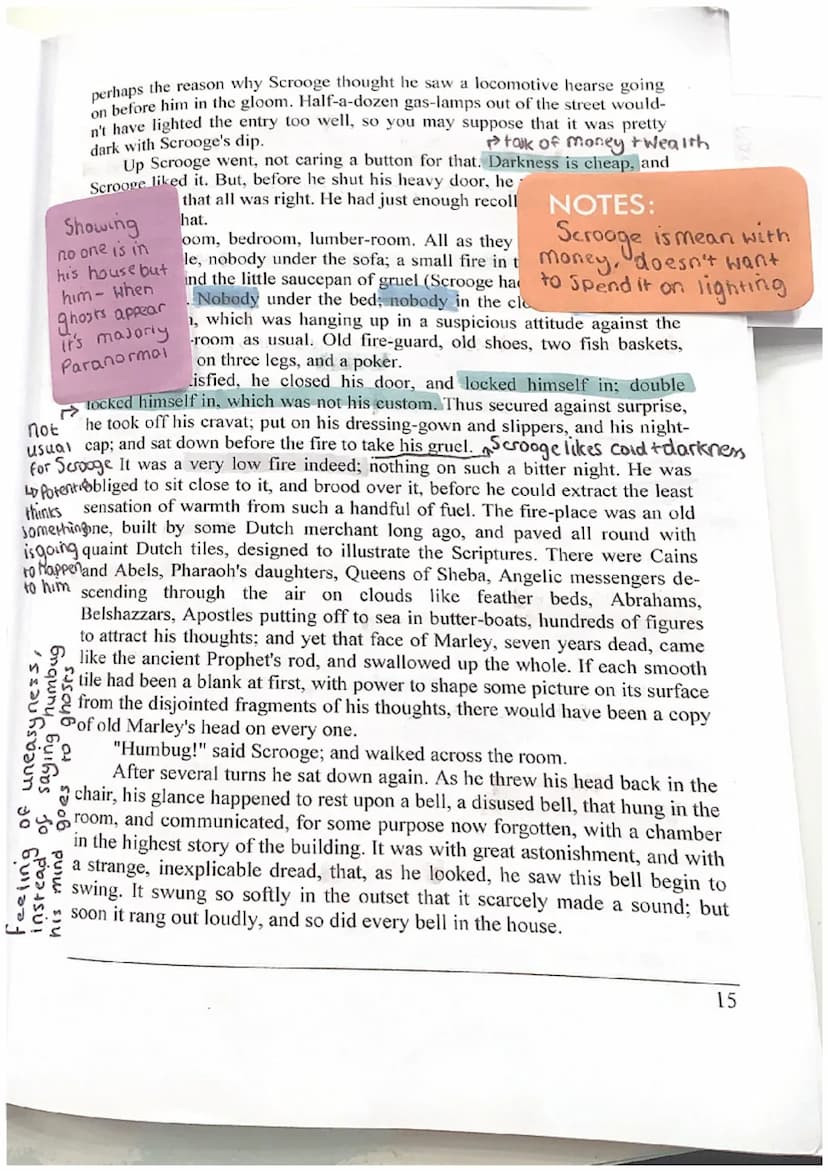 perhaps the reason why Scrooge thought he saw a locomotive hearse going
on before him in the gloom. Half-a-dozen gas-lamps out of the street would-
n't have lighted the entry too well, so you may suppose that it was pretty
dark with Scrooge's dip.
↱ talk of money + wealth
Up Scrooge went, not caring a button for that. Darkness is cheap, and
Scrooge liked it. But, before he shut his heavy door, he
that all was right. He had just enough recoll
hat.
oom, bedroom, lumber-room. All as they
le, nobody under the sofa; a small fire in t
nd the little saucepan of gruel (Scrooge ha
. Nobody under the bed; nobody in the clo
, which was hanging up in a suspicious attitude against the
-room as usual. Old fire-guard, old shoes, two fish baskets,
on three legs, and a poker.
isfied, he closed his door, and locked himself in; double
locked himself in, which was not his custom. Thus secured against surprise,
he took off his cravat; put on his dressing-gown and slippers, and his night-
cap; and sat down before the fire to take his gruel.
Scrooge likes cold + darkness
It was a very low fire indeed; nothing on such a bitter night. He was
obliged to sit close to it, and brood over it, before he could extract the least
sensation of warmth from such a handful of fuel. The fire-place was an old
one, built by some Dutch merchant long ago, and paved all round with
quaint Dutch tiles, designed to illustrate the Scriptures. There were Cains
and Abels, Pharaoh's daughters, Queens of Sheba, Angelic messengers de-
scending through the air on clouds like feather beds, Abrahams,
Belshazzars, Apostles putting off to sea in butter-boats, hundreds of figures
to attract his thoughts; and yet that face of Marley, seven years dead, came
like the ancient Prophet's rod, and swallowed up the whole. If each smooth
tile had been a blank at first, with power to shape some picture on its surface
from the disjointed fragments of his thoughts, there would have been a copy
of old Marley's head on every one.
"Humbug!" said Scrooge; and walked across the room.
After several turns he sat down again. As he threw his head back in the
chair, his glance happened to rest upon a bell, a disused bell, that hung in the
room, and communicated, for some purpose now forgotten, with a chamber
in the highest story of the building. It was with great astonishment, and with
a strange, inexplicable dread, that, as he looked, he saw this bell begin to
swing. It swung so softly in the outset that it scarcely made a sound; but
soon it rang out loudly, and so did every bell in the house.
15
Showing
no one is in
his house but
him - when
ghosts appear
it's majorly
Paranormal
NOTES:
Scrooge is mean with
money, doesn't want
to spend it on lighting
not
usual
for Scrooge
↳ Potenti
thinks
something
is going
to happen
to him
feeling of uneasyness,
instead of saying humbug
his mind goes to ghosts